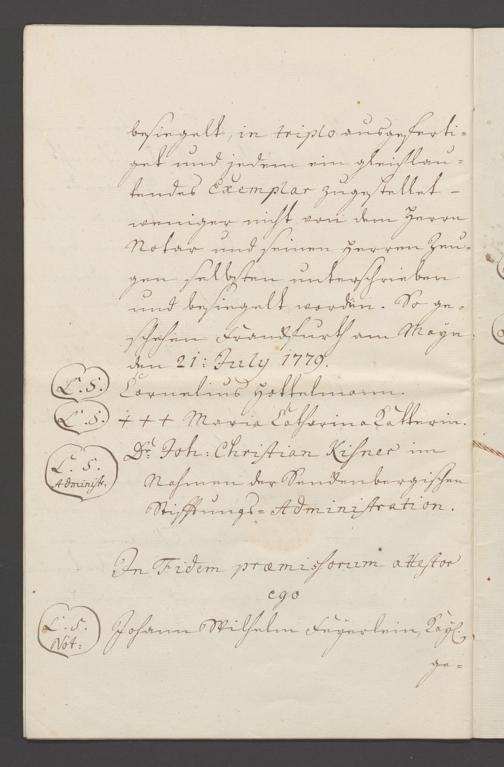 besiegelt, in triplo ausgeferti=
get und jedem ein gleichlau=
tendes Exemplar zugestellet –
weniger nicht von dem Herrn
Notar und seinen Herren Zeu=
gen selbsten unterschrieben
und besiegelt worden. So ge=
schehen Franckfurth am Mayn
den 21: July 1779.
L. S. Cornelius Hottelmann.
L. S. +++ Maria Catharina Katterin.
L. S. Administr. Dr. Joh: Christian Kisner im
Nahmen der Senckenbergischen
Stifftungs=Administration.
In Fidem præmissorum attestor
ego
L. S. Not: Johann Wilhelm Feyerlein, Kayl.
ge=